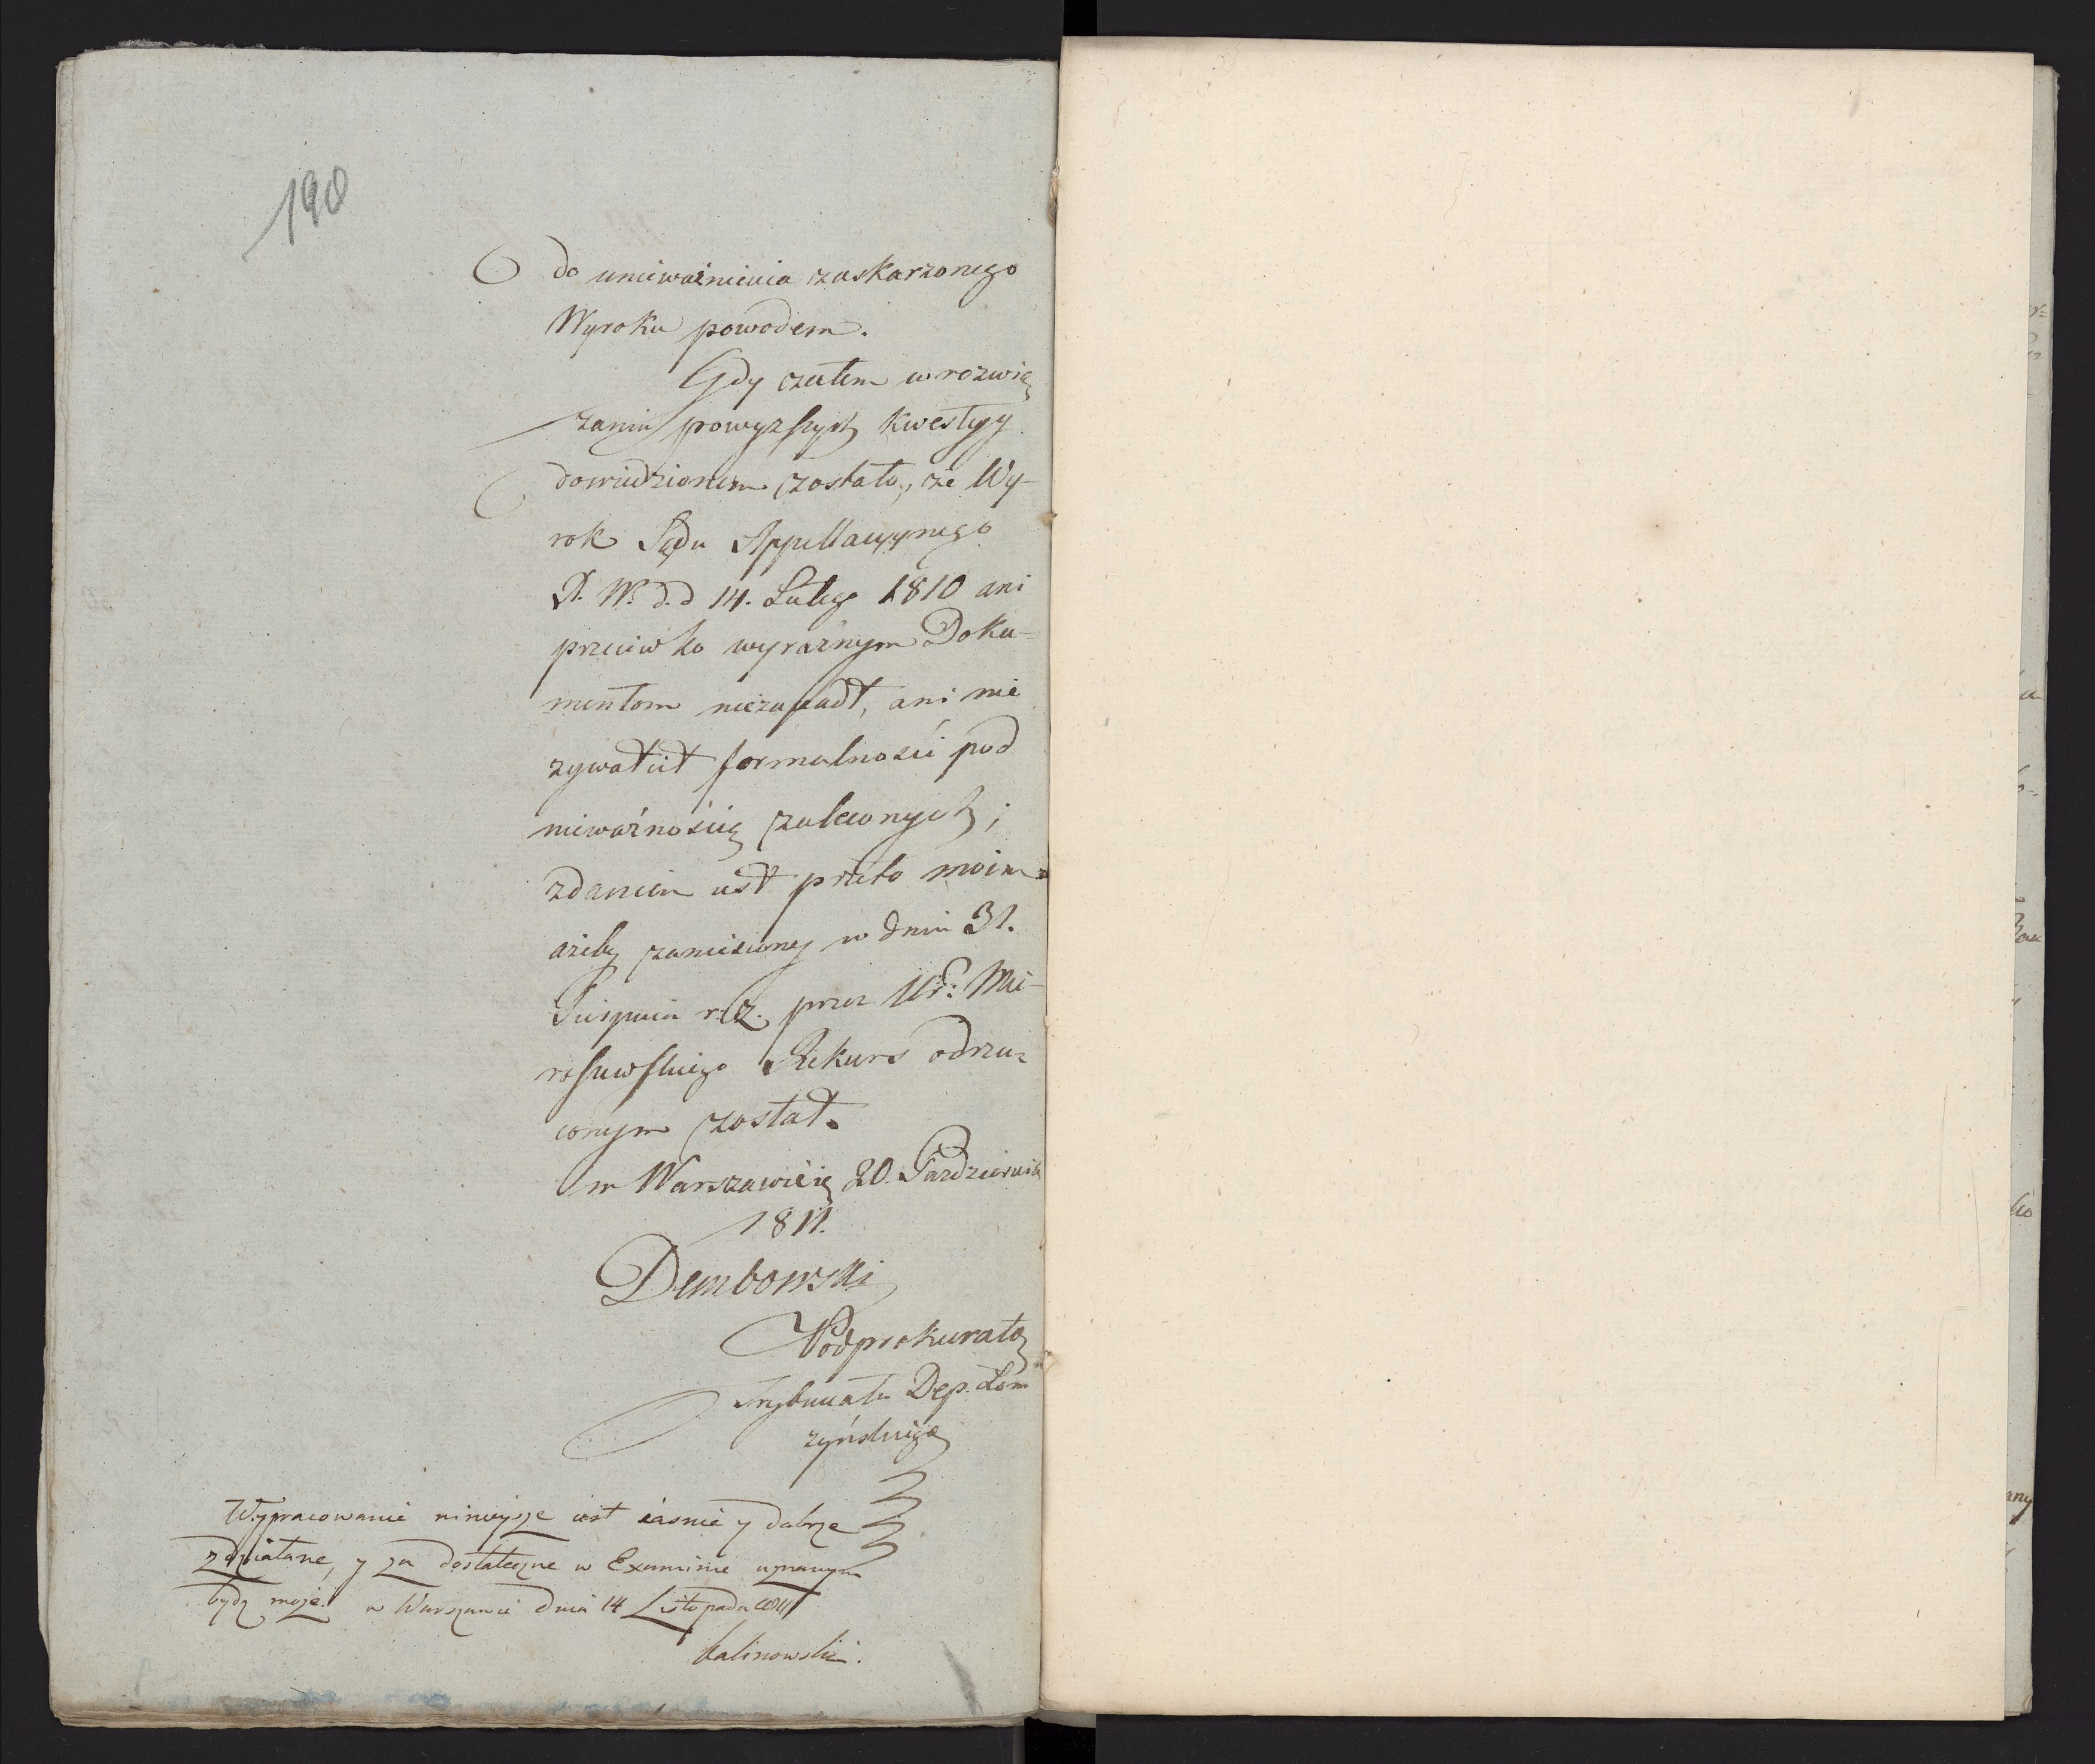 190
do unieważnienia zaskarzonego
Wyroku powodem.
Gdy zatem w rozwią
zaniu powyższych kwestyy
dowiedzionem zostało, że Wy-
rok Sądu Appellacyynego
X. W. d. d 14. Lutego 1810 ani
przeciwko wyraźnym Doku-
mentom niezapadł, ani nie
zgwałcił formalności pod
nieważnością zaleconych;
zdaniem iest przeto moim
ażeby zaniesiony w dniu 31.
Sierpnia r. z. przez Ur: Mie-
rszewskiego Rekurs odrzu-
conym został.
w Warszawie 20. Pazdziernika
1811.
Dembowski
Podprokurator
Trybunału Dep. Łom
żyńskiego
Wypracowanie ninieysze iest iasnie y dobrze
zdziałane, y za dostateczne w Examinie uznanym
bydz może. w Warszawie dnia 14 Listopada 1811
Kalinowski.